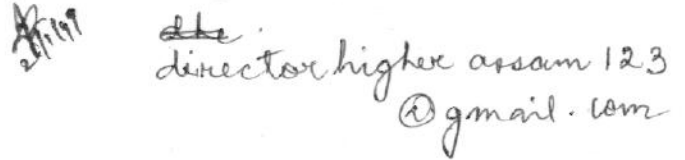 director higher assam 123
@gmail.com